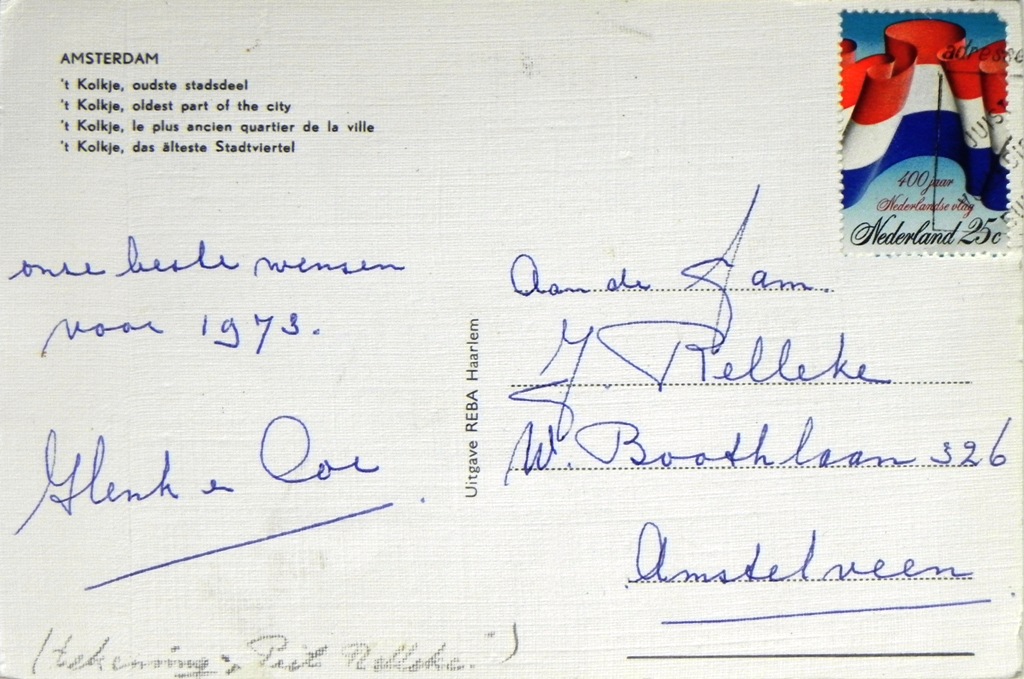 AMSTERDAM
't Kolkje, oudste stadsdeel
't Kolkje, oldest part of the city
't Kolkje, le plus ancien quartier de la ville
't Kolkje, das älteste Stadtviertel
adresse
JUIST
400 jaar
Nederlandse vlag
Nederland 25c
onse beste wensen
voor 1973.
Henk en Cor
Uitgave REBA Haarlem
Aan de Fam.
J. Relleke
W. Boothlaan 326
Amstelveen
(tekening: Piet Relleke.)